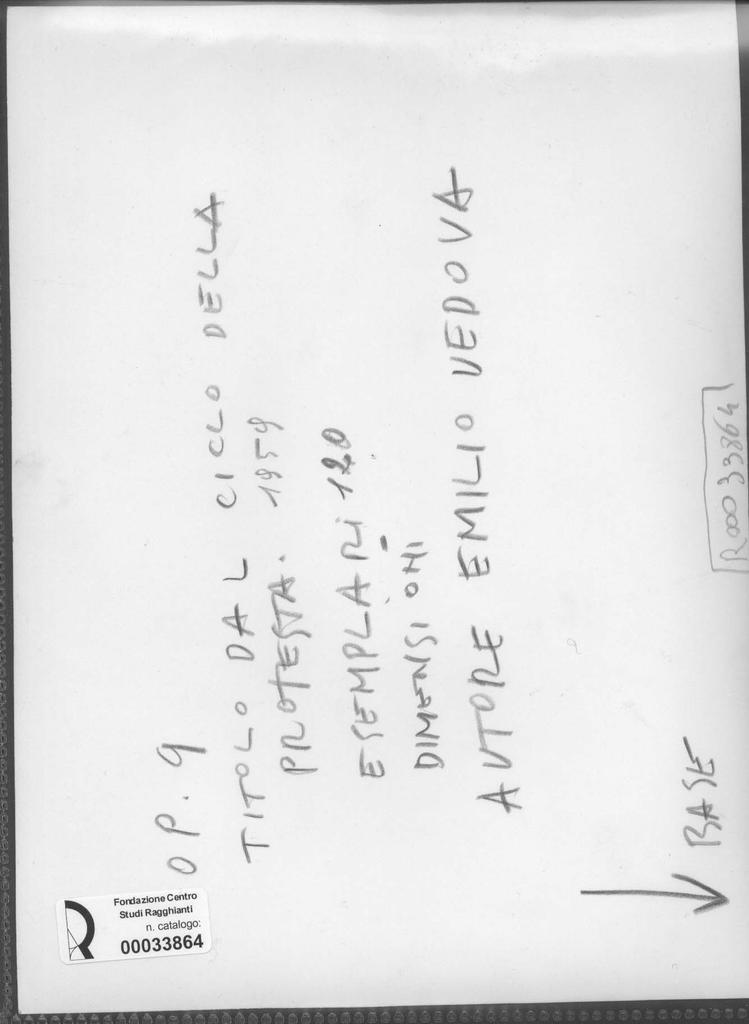 OP. 9
TITOLO DAL CICLO DELLA
PROTESTA. 1959
ESEMPLARI 120
DIMENSIONI
AUTORE EMILIO VEDOVA
BASE
R00033864
Fondazione Centro
Studi Ragghianti
n. catalogo:
00033864